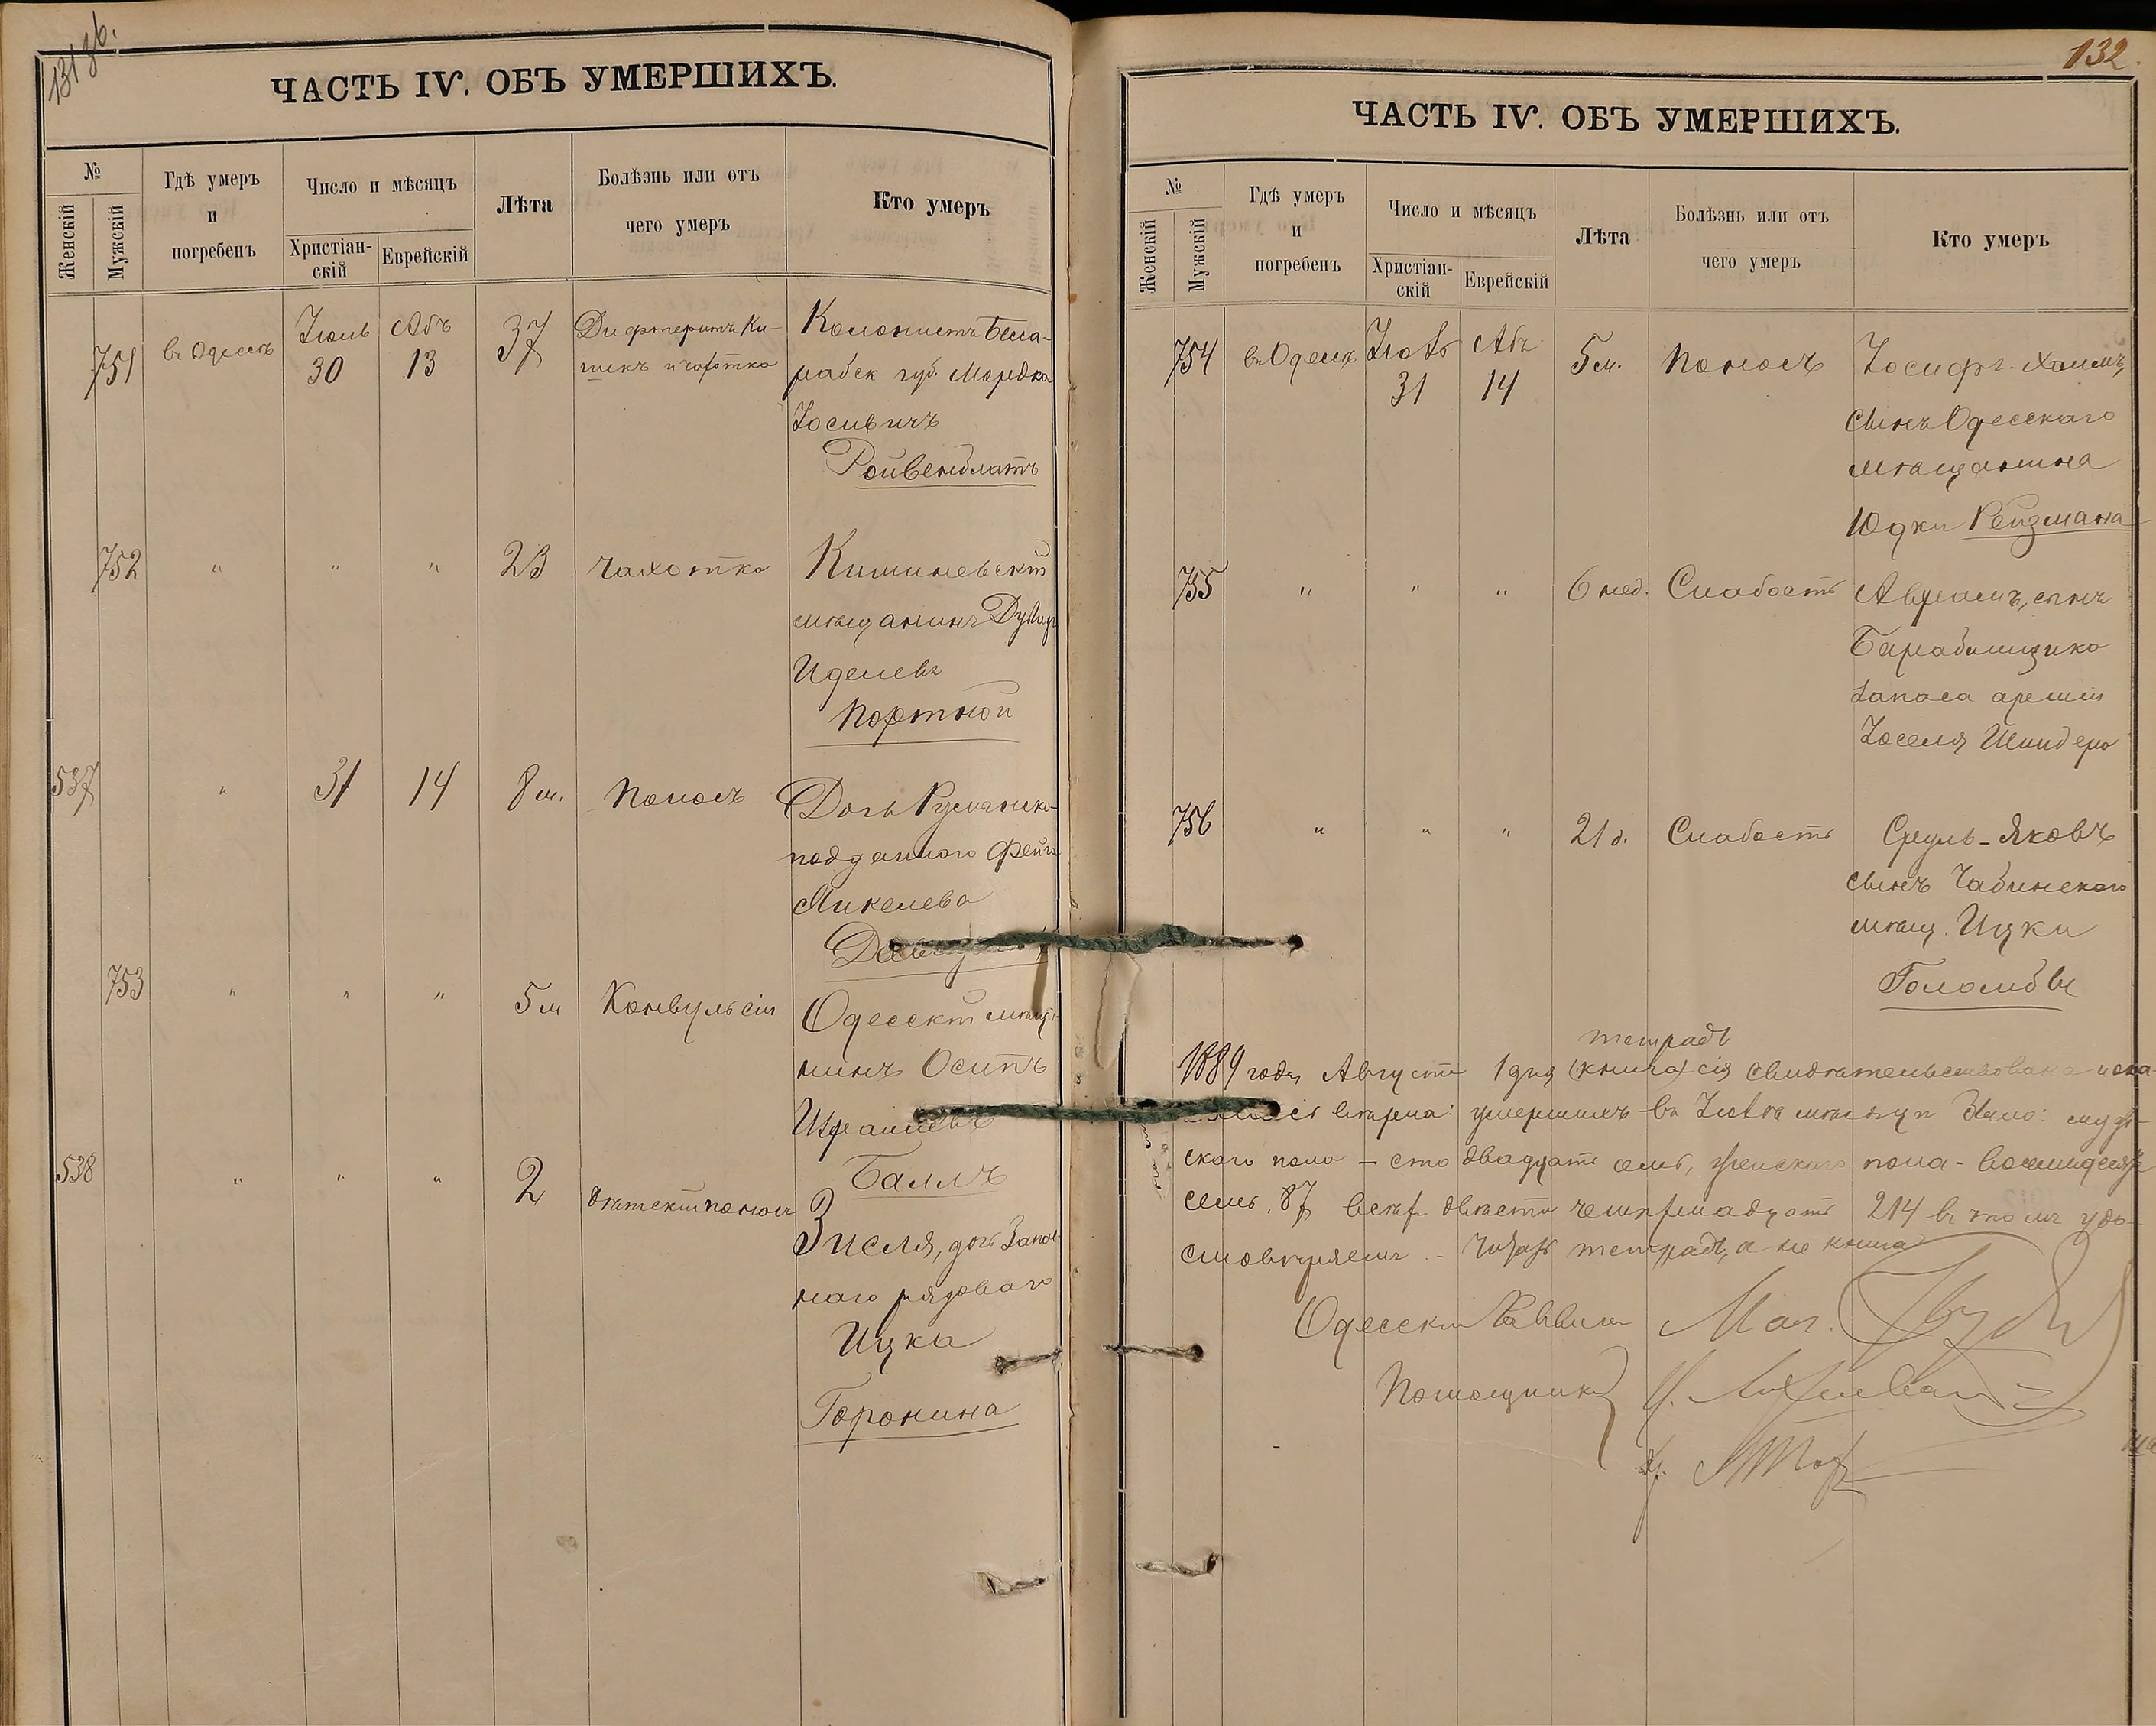 131 об.
ЧАСТЬ IV. ОБЪ УМЕРШИХЪ.
№
Женскій
Мужскій
Гдѣ умеръ
и
погребенъ
Число и мѣсяцъ
Христіан-
скій
Еврейскій
Лѣта
Болѣзнь или отъ
чего умеръ
Кто умеръ
751
въ Одессѣ
Іюль
30
Абъ
13
37
Дифтеритъ Ки-
шекъ и чахотка
Колонистъ Бесса-
рабск губ. Мордко
Іосивичъ
Ройвенблатъ
752
"
"
"
23
чахотка
Кишиневскій
мѣщанинъ Дувидъ
Иделевъ
Портной
537
"
31
14
8 м.
Поносъ
Дочь Румынско-
подданной Фейги
753
"
"
"
5 м
Конвульсіи
Одесскій мѣща-
нинъ Осипъ
Израилевъ
Баллъ
538
"
"
"
2
дѣтскій поносъ
Зисля, дочь Запас-
наго рядоваго
Ицка
Горонина
132
ЧАСТЬ IV. ОБЪ УМЕРШИХЪ.
№
Женскій
Мужскій
Гдѣ умеръ
и
погребенъ
Число и мѣсяцъ
Христіан-
скій
Еврейскій
Лѣта
Болѣзнь или отъ
чего умеръ
Кто умеръ
754
въ Одессѣ
Іюль
31
Абъ
14
5 м.
Поносъ
Іосифъ-Хаимъ,
сынъ Одесскаго
мѣщанина
Юдки Рейзмана
755
"
"
"
6 нед.
Слабость
Авраамъ, сынъ
Барабанщика
запаса арміи
Іоселя Шнидера
756
"
"
"
21 д.
Слабость
Сруль-Яковъ
сынъ Чабинскаго
мѣщ. Ицки
Голомбы
тетрадь
1889 года Августа 1 дня (книга) сія свидѣтельствована и ока-
умершихъ въ Іюлѣ мѣсяцѣ было: муж-
скаго пола - сто двадцать семь, женскаго пола - восемьдесятъ
семь. 87 всего двѣсти четырнадцать 214 въ томъ удо-
стовѣряемъ. - тетрадь, а не книга
Одесскій Раввинъ
Помощники